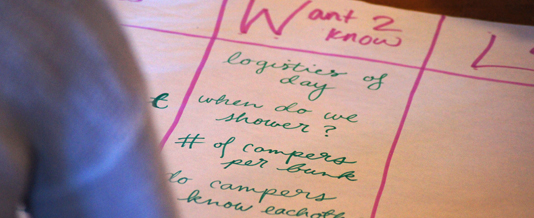 Want 2
know
L
logistics of
day
t
when do we
shower?
# of campers
per bunk
do campers
know each